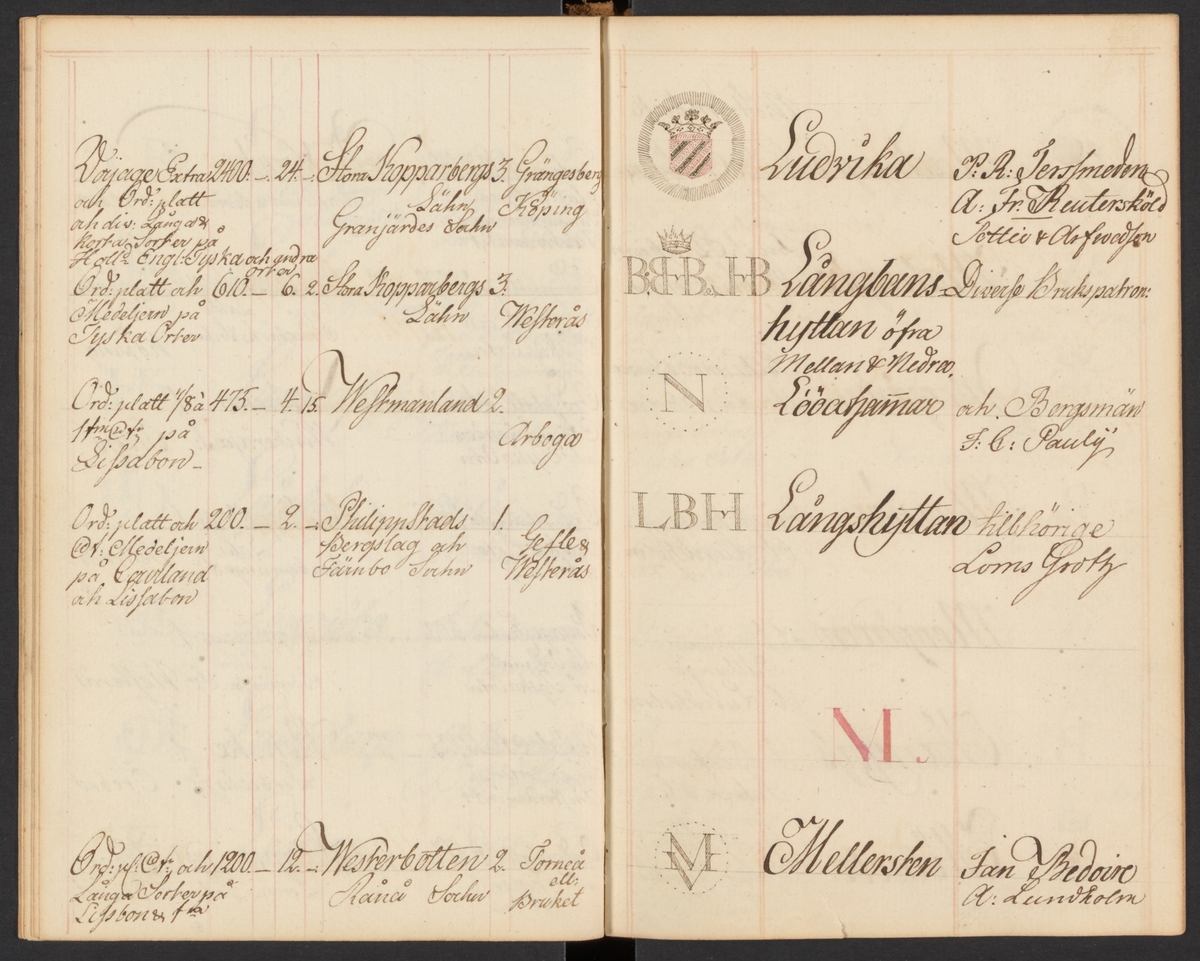 Ord: platt
Stora Kopparbergs 3. Grängesberg
Extra 2400. — 24. —
och Ord: platt
Lähn
Köping
Granjärdes Sochn
och div: Långa &
korta Sorter på
Holl: Engl: Tyska och andra
orter
Ord: platt och 610. — 6. 2. Stora Kopparbergs 3.
Medeljern på
Lähn
Westerås
Tyska Orter
475. — 4. 15. Westmanland 2.
på
Arboga
Lissabon —
Ord: platt och 200. — 2. — Philippstads 1.
Medeljern
Bergslag och
Gefle &
på
Färnbo Sochn
Westerås
och Lissabon
och 1200. — 12. — Westerbotten 2. Torneå
ell:
Långa Sorter på
Råneå Sochn
Bruket
Lissbon &
Ludvika
P: R: Tersmeden
A: Fr: Reutersköld
Settie & Arfwedson
B: B&B. HB Långbans-
Diverse Brukspatron:
hyttan öfra
Mellan & Nedra.
N
Lööathamar
och Bergsmän
F: C: Pauly
LBH
Långshyttan
tilhörige
Loms Grotz
M.
M
Mellersten
Jan Bedoire
A: Lundholm